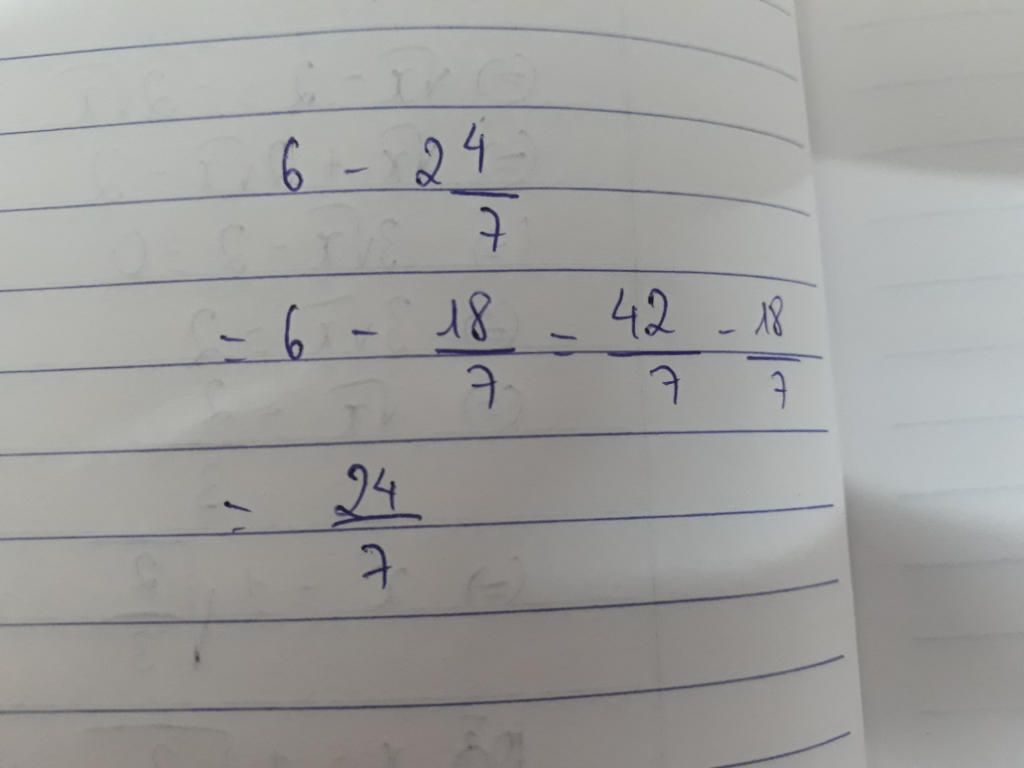 6 - 2 4/7
= 6 - 18/7 = 42/7 - 18/7
= 24/7